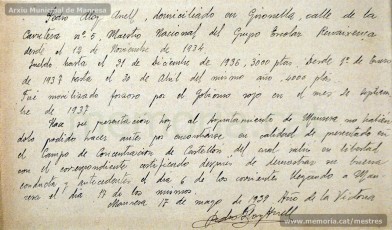 Arxiu Municipal de Manresa
Pedro Aloy Anell, domiciliado en Gironella, calle de la
Carretera nº 5, Maestro Nacional del Grupo Escolar Renaixensa
desde el 12 de Noviembre de 1934.
Sueldo hasta el 31 de Diciembre de 1936, 3000 ptas. Desde 1º de Enero
de 1937 hasta el 30 de Abril del mismo año, 4000 ptas.
Fui movilizado forzoso por el Gobierno rojo en el mes de septiem-
bre de 1937.
Hace su presentación hoy al Ayuntamiento de Manresa no habién-
dolo podido hacer antes por encontrarse en calidad de presentado en
el Campo de Concentración de Castellón del cual salió en libertad
con el correspondiente certificado después de demostrar su buena
conducta y antecedentes el dia 6 de los corrientes llegando a Man-
resa el dia 17 de los mismos.
Manresa 17 de marzo de 1939 Año de la Victoria
Pedro Aloy Anell
www.memoria.cat/mestres